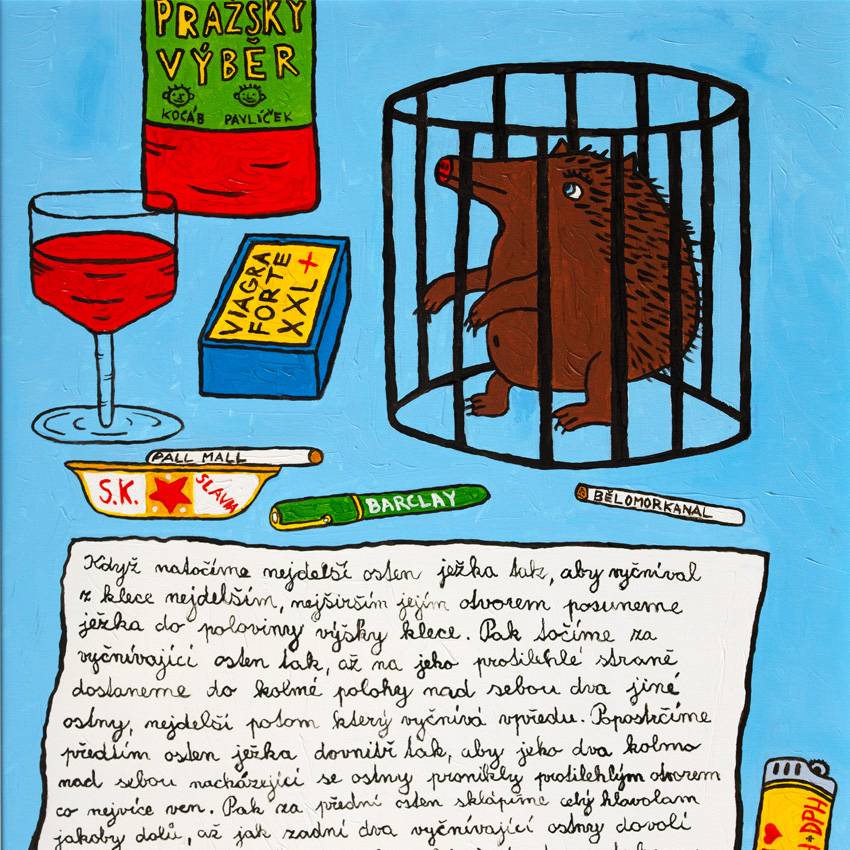 PRAŽSKÝ
VÝBĚR
KOCÁB PAVLÍČEK
VIAGRA
FORTE
XXL+
PALL MALL
S.K. SLAVIA
BARCLAY
BĚLOMORKANAL
Když natočíme nejdelší osten ježka tak, aby vyčníval
z klece nejdelším, nejširším jejím otvorem posuneme
ježka do poloviny výšky klece. Pak točíme za
vyčnívající osten tak, až na jeho protilehlé straně
dostaneme do kolmé polohy nad sebou dva jiné
ostny, nejdelší potom který vyčnívá vpředu. Popostrčíme
předtím osten ježka dovnitř tak, aby jeko dva kolmo
nad sebou nacházející se ostny pronikly protilehlým otvorem
co nejvíce ven. Pak za přední osten sklápíme celý hlavolam
jakoby dolů, až jak zadní dva vyčnívající ostny dovolí
H+DPH